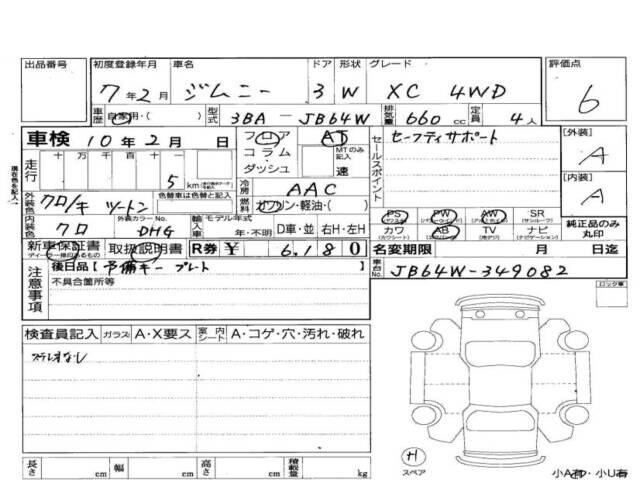 出品番号 初度登録年月 車名 ドア 形状 グレード 評価点
7年2月 ジムニー 3 W XC 4WD 6
車歴 自家用・( ) 型式 3BA-JB64W 排気量 660cc 定員 4人
車検 10年2月 日 フロア AT セーフティサポート [外装]
コラム MTのみ記入 A
走行 十 万 千 百 十 一 ダッシュ 速 セールスポイント
5 km [内装]
冷房 AAC A
外装色 クロ/キ ツートン 色替車は色替と記入 燃料 ガソリン・軽油・( )
PS PW AW SR
内装色 クロ 外装カラーNo. DHG 輸入車 モデル年式 年・不明 D車・並 右H・左H カワ AB TV ナビ 純正品のみ丸印
新車保証書 取扱説明書 R券 ¥ 6,180 名変期限 月 日迄
後日品【予備キー プレート 】 車台No. JB64W-349082
注意事項 不具合箇所等
ロック車
検査員記入 ガラス A・X要ス 室内シート A・コゲ・穴・汚れ・破れ
H
スペア
長さ cm 幅 cm 高さ cm 積載量 kg 小A有・小U有
現在色を記入